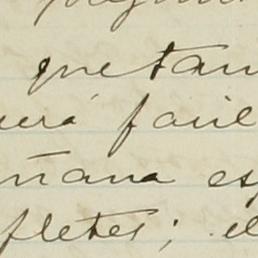 que tan
será facil
ñana es
fletes; el